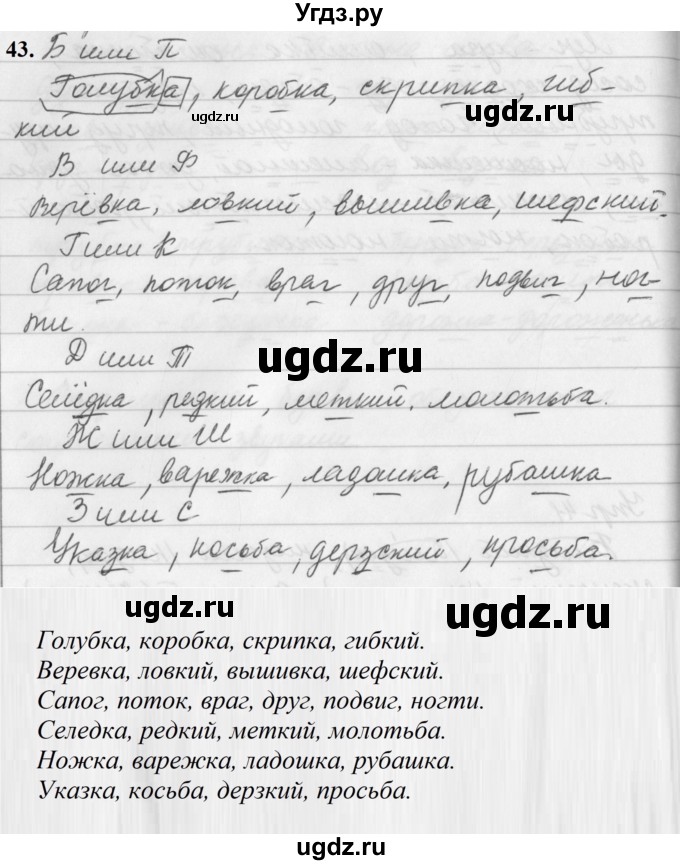 Угдз.ру
43. Б или П
Голубка, коробка, скрипка, гиб-
кий
ugdz.ru
ugdz.ru
В или Ф
Верёвка, ловкий, вышивка, шефский.
Г или К
Сапог, поток, враг, друг, подвиг, ног-
ти.
ugdz.ru
Д или Т
Селёдка, редкий, меткий, молотьба.
Ж или Ш
Ножка, варежка, ладошка, рубашка
З или С
Указка, косьба, дерзский, просьба.
ugdz.ru
ugdz.ru
Голубка, коробка, скрипка, гибкий.
Веревка, ловкий, вышивка, шефский.
Сапог, поток, враг, друг, подвиг, ногти.
Селедка, редкий, меткий, молотьба.
Ножка, варежка, ладошка, рубашка.
Указка, косьба, дерзкий, просьба.
ugdz.ru
ugdz.ru